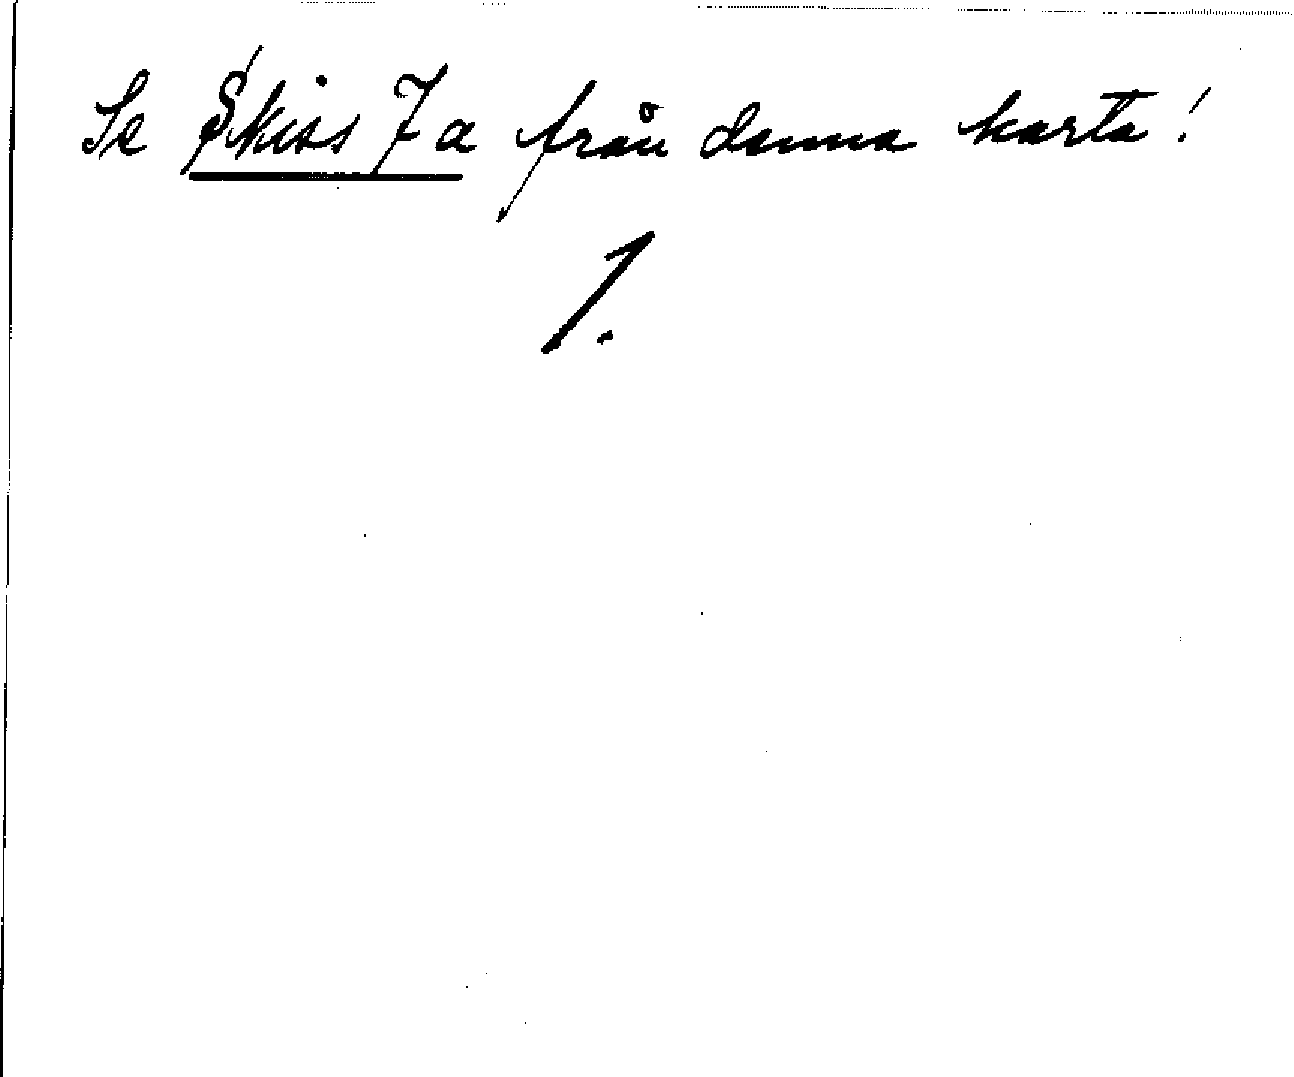 Se Skiss 7a från denna karta!
1.